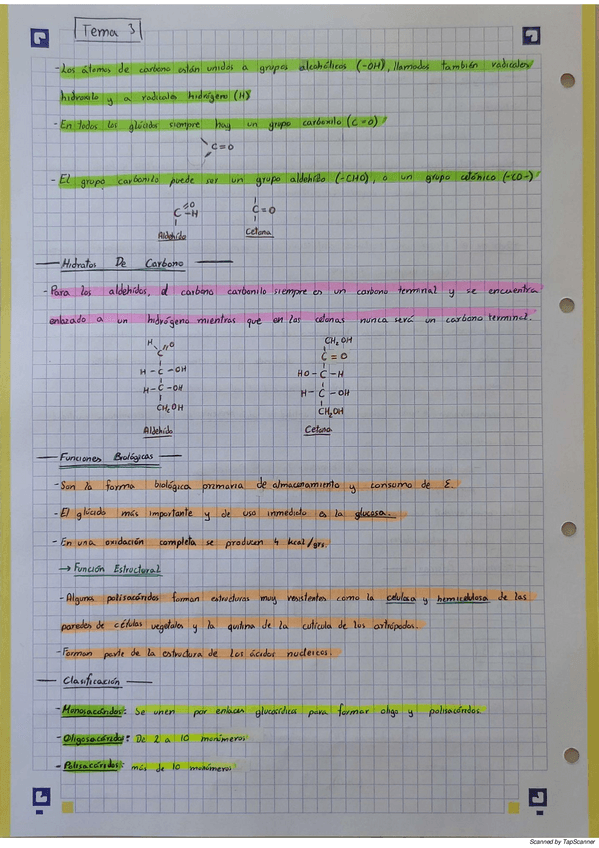 Tema 3
- Los átomos de carbono están unidos a grupos alcohólicos (-OH), llamados también radicales
hidroxilo y a radicales hidrógeno (H)
- En todos los glúcidos siempre hay un grupo carbonilo (C=O)
C=O
- El grupo carbonilo puede ser un grupo aldehído (-CHO), o un grupo cetónico (-CO-)
C=O
-H
C=O
Aldehído
Cetona
Hidratos De Carbono
- Para los aldehídos, el carbono carbonilo siempre es un carbono terminal y se encuentra
enlazado a un hidrógeno mientras que en las cetonas nunca será un carbono terminal.
H O
C
H-C-OH
H-C-OH
CH₂OH
Aldehído
CH₂OH
C=O
HO-C-H
H-C-OH
CH₂OH
Cetona
Funciones Biológicas
- Son la forma biológica primaria de almacenamiento y consumo de E.
- El glúcido más importante y de uso inmediato es la glucosa.
- En una oxidación completa se producen 4 kcal/grs.
→ Función Estructural
- Alguna polisacáridos forman estructuras muy resistentes como la celulosa y hemicelulosa de las
paredes de células vegetales y la quitina de la cutícula de los artrópodos.
- Forman parte de la estructura de los ácidos nucleicos.
Clasificación
- Monosacáridos: Se unen por enlaces glucosídicos para formar oligo y polisacáridos.
- Oligosacáridos: De 2 a 10 monómeros
- Polisacáridos: más de 10 monómeros
Scanned by TapScanner